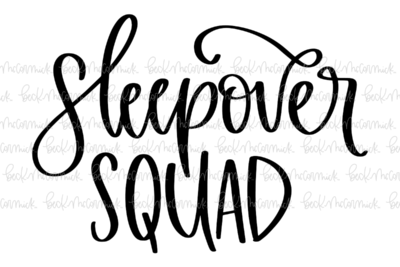 sleepover
SQUAD